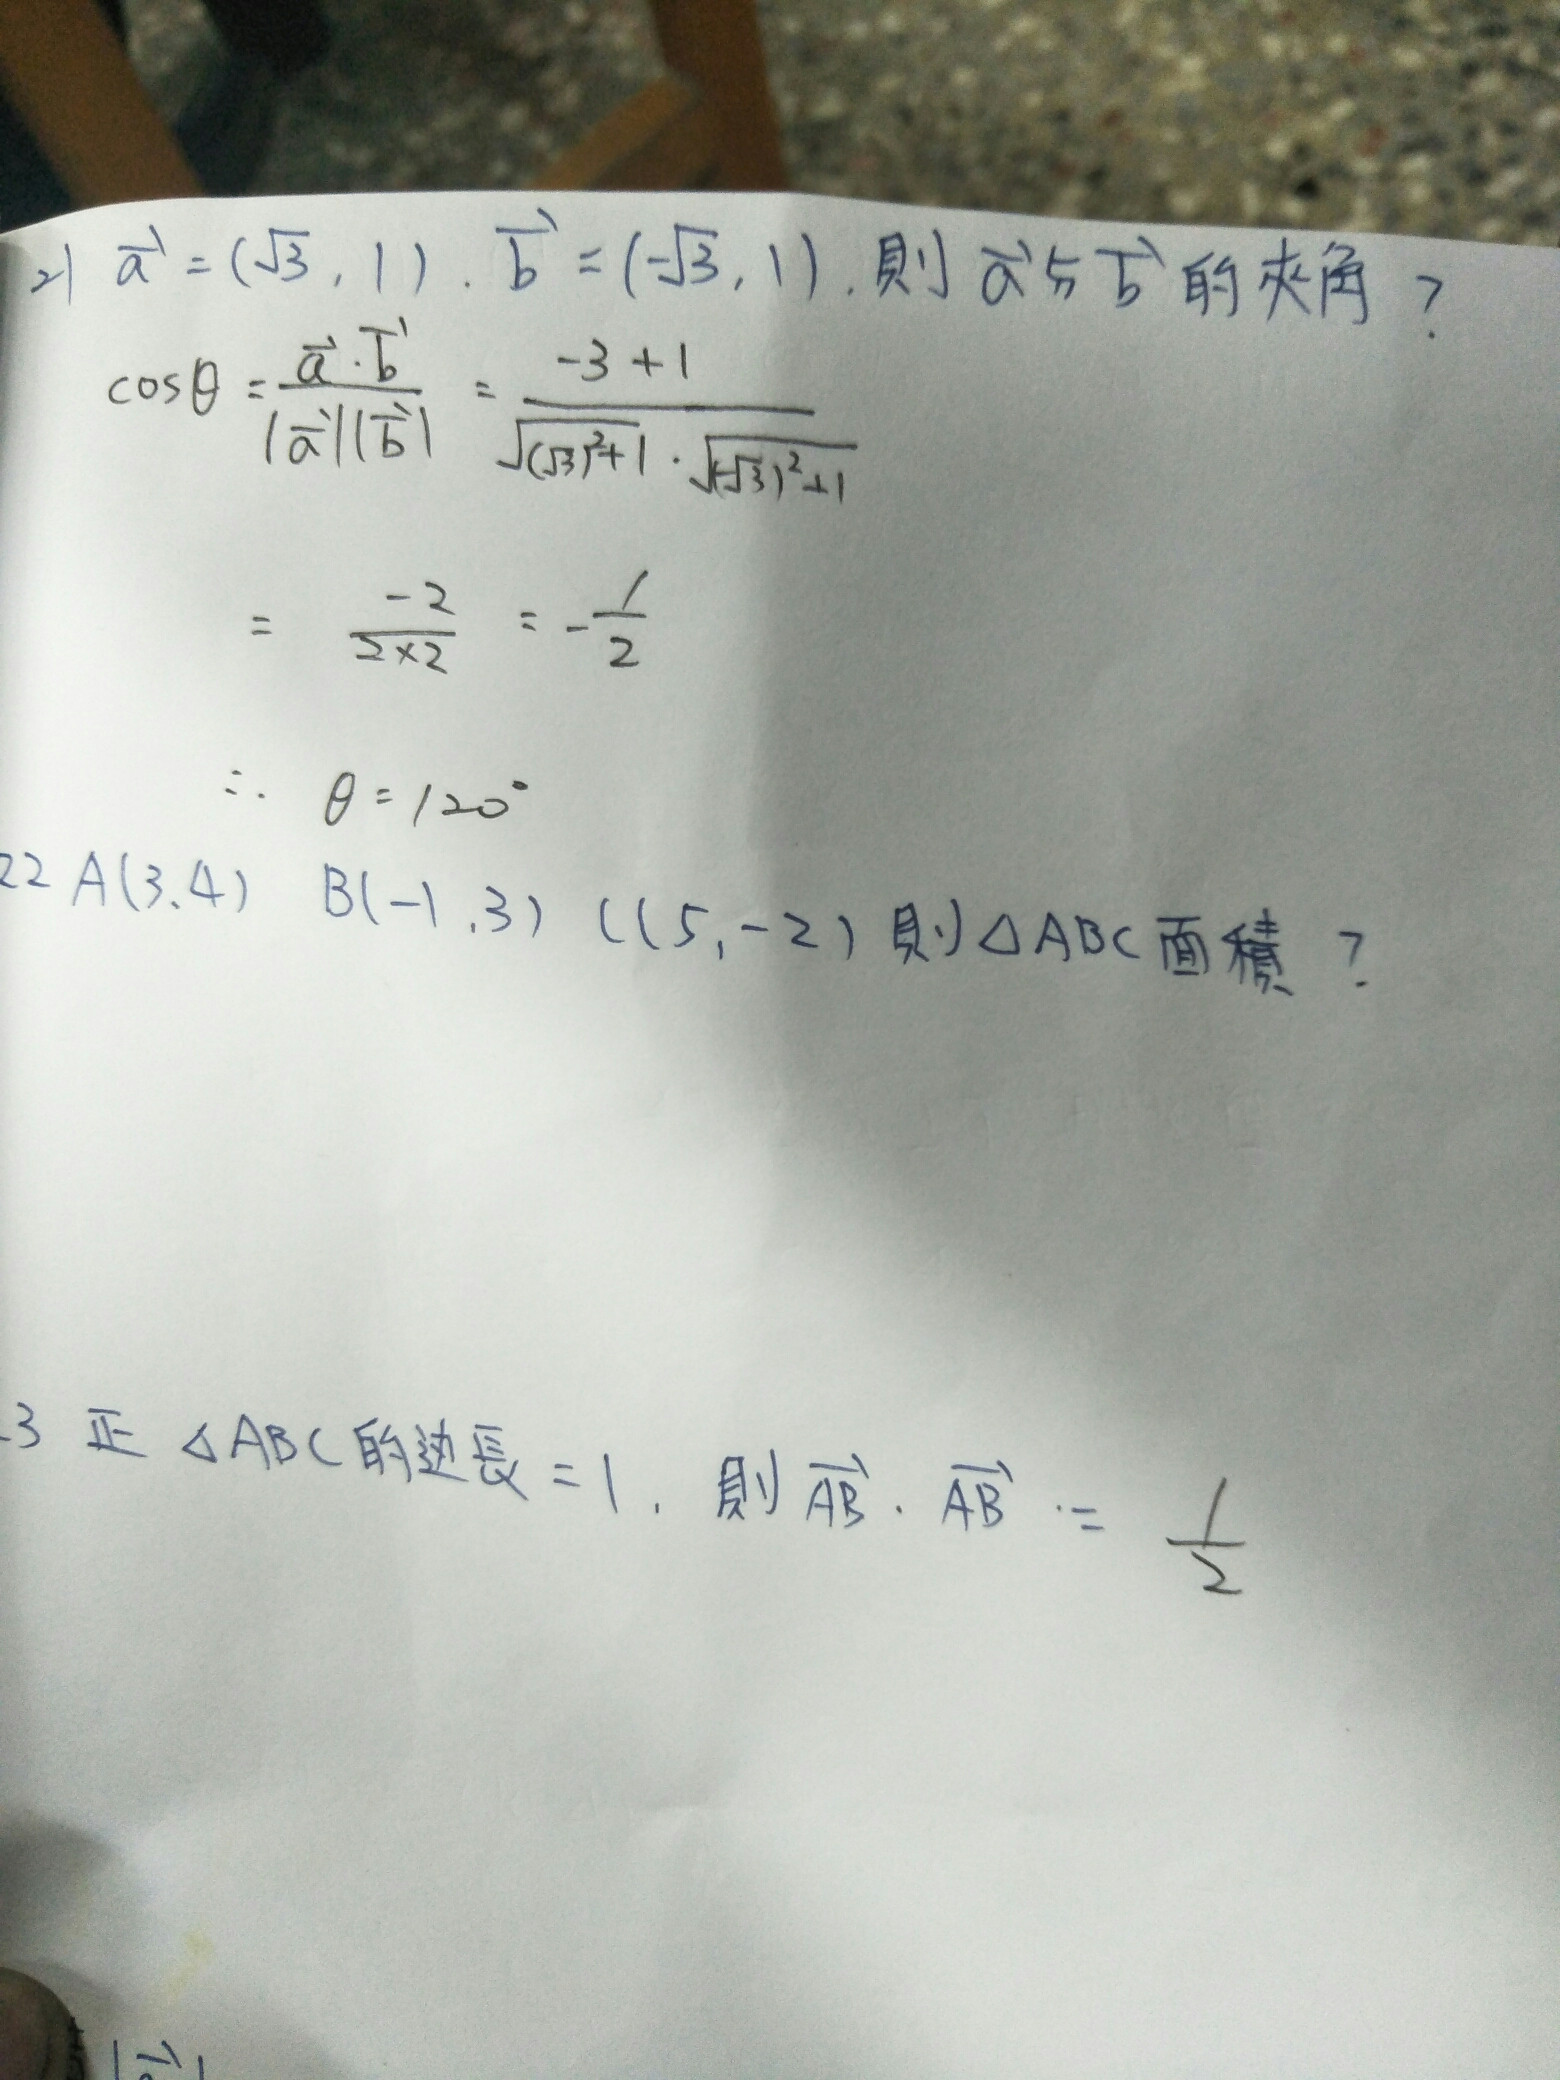 21 a⃗ = (√3, 1). b⃗ = (-√3, 1). 則 a⃗ 与 b⃗ 的夾角?
cosθ = a⃗·b⃗ / |a⃗||b⃗| = -3+1 / √(√3)²+1 · √(-√3)²+1
= -2 / 2×2 = -1/2
∴ θ = 120°
22 A(3.4) B(-1.3) C(5,-2) 則 △ABC 面積?
3 正 △ABC 的边長 = 1. 則 AB⃗ · AB⃗ = 1/2